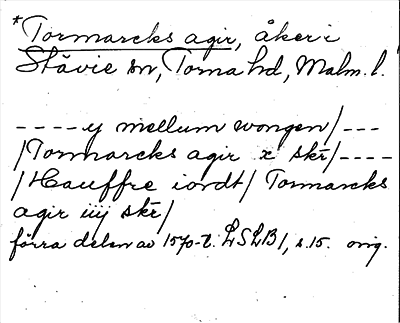 *Tormarcks agir, åker i
Stävie sn, Torna hd, Malm. l.
----y mellum wongen/---
/Tormarcks agir x skr/----
/Hauffre iordt/ Tormarcks
agir iiij skr/
förra delen av 1570-t. LSLB1, s. 15. orig.